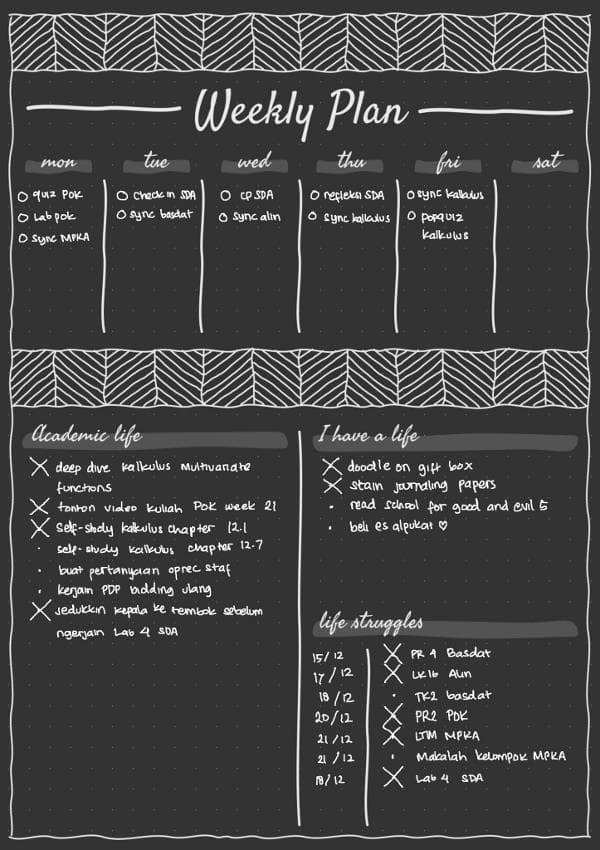 Weekly Plan
mon
tue
wed
thu
fri
sat
quiz POK
Lab pok
Sync MPKA
Check in SDA
Sync basdat
CP SDA
Sync alin
refleksi SDA
Sync kalkulus
Sync kalkulus
popquiz
kalkulus
Academic life
deep dive kalkulus multivariate
functions
tonton video kuliah POK week 21
self-study kalkulus chapter 12.1
self-study kalkulus chapter 12.7
buat pertanyaan oprec staf
kerjain PDP bidding ulang
Jedukkin kepala ke tembok sebelum
ngerjain Lab 4 SDA
I have a life
doodle on gift box
stain journaling papers
read school for good and evil 5
beli es alpukat ♡
life struggles
15/12 PR 4 Basdat
17/12 LK16 Alin
18/12 TK2 basdat
20/12 PR2 POK
21/12 LTM MPKA
21/12 Makalah kelompok MPKA
18/12 Lab 4 SDA